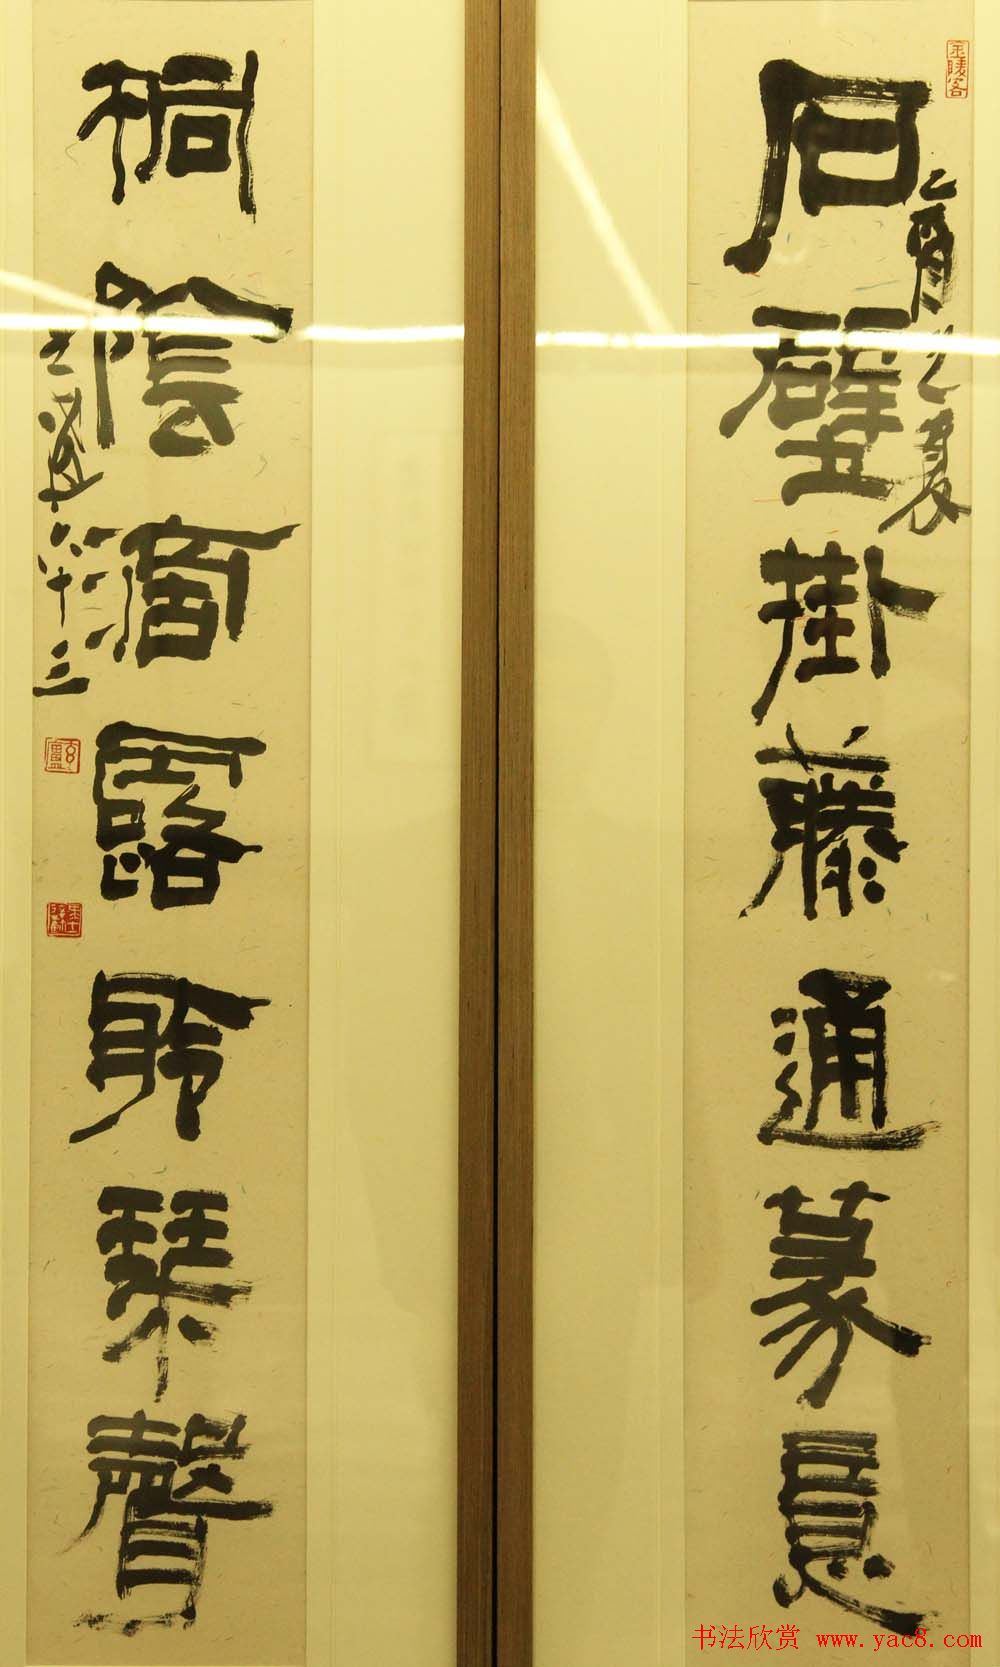 金陵客
乙酉之夏
石壁掛藤通篆意
桐陰滴露聆琴聲
八十三
书法欣赏 www.yac8.com